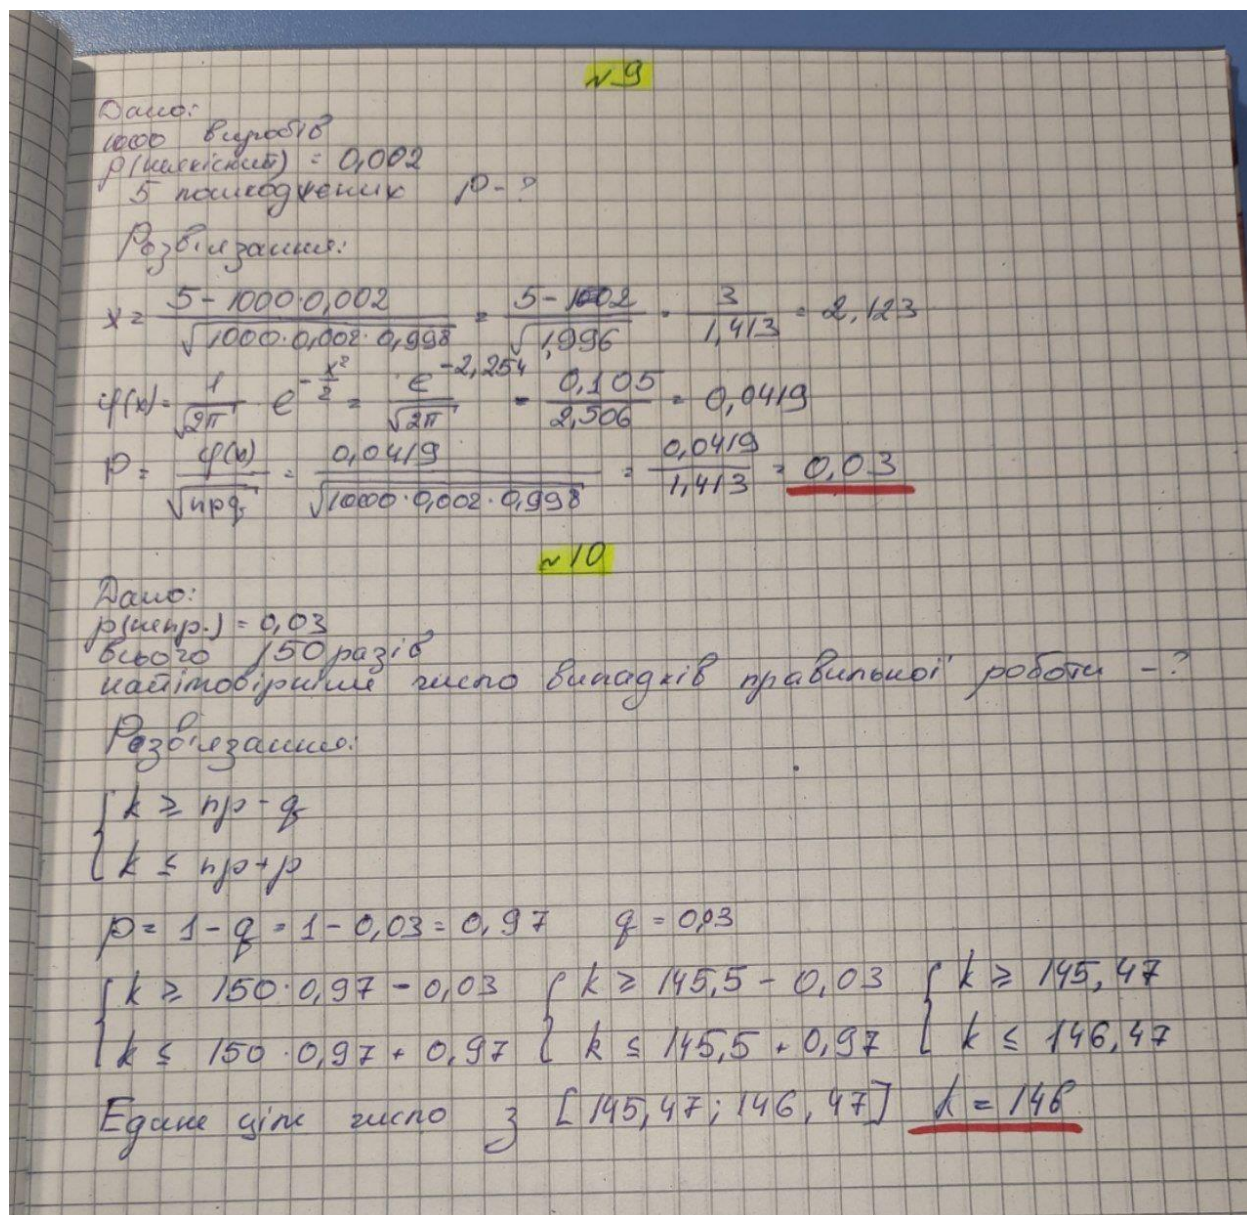 №9
Дано:
1000 виробів
p(неякісний) = 0,002
5 пошкоджених p-?
Розв'язання:
x = (5 - 1000·0,002)/√(1000·0,002·0,998) = (5 - 2)/√1,996 = 3/1,413 = 2,123
φ(x) = 1/√2π · e^(-x²/2) = e^(-2,254)/√2π = 0,105/2,506 = 0,0419
P = φ(x)/√npq = 0,0419/√(1000·0,002·0,998) = 0,0419/1,413 = 0,03
№10
Дано:
p(непр.) = 0,03
всього 150 разів
найімовірніше число випадків правильної роботи -?
Розв'язання:
{ k ≥ np - q
{ k ≤ np + p
p = 1 - q = 1 - 0,03 = 0,97 q = 0,03
{ k ≥ 150·0,97 - 0,03 { k ≥ 145,5 - 0,03 { k ≥ 145,47
{ k ≤ 150·0,97 + 0,97 { k ≤ 145,5 + 0,97 { k ≤ 146,47
Єдине ціле число з [145,47; 146,47] k = 146